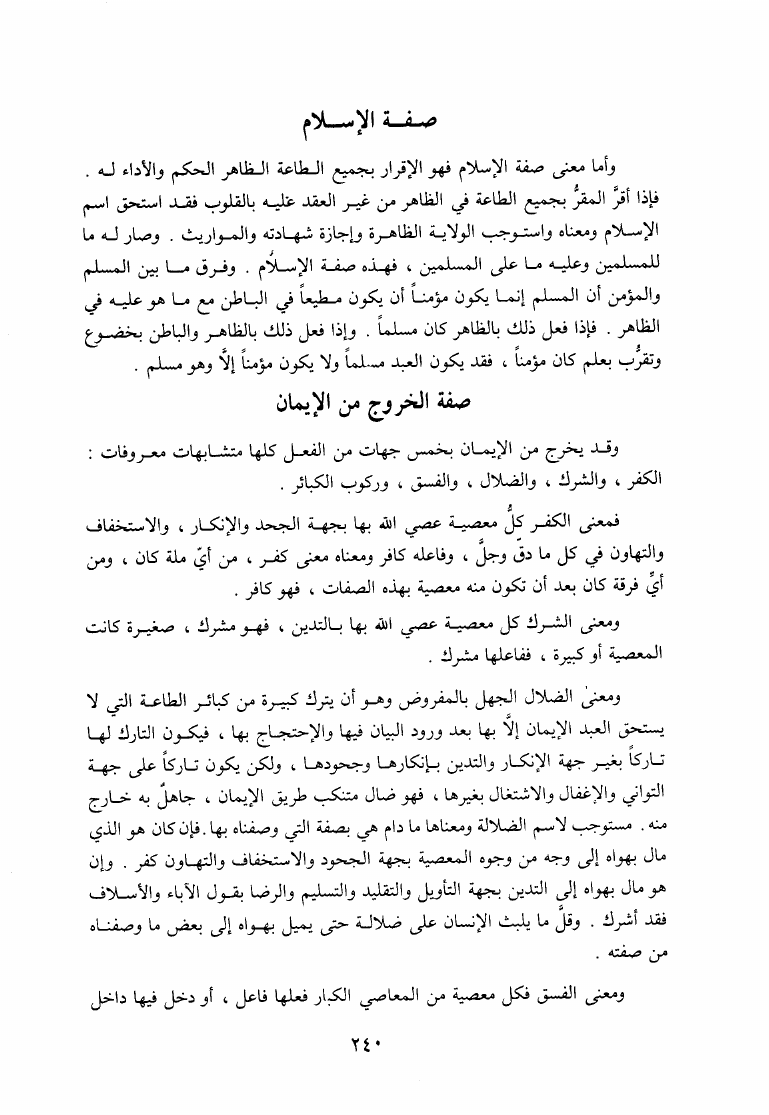 صفة الإسلام
وأما معنى صفة الإسلام فهو الإقرار بجميع الطاعة الظاهر الحكم والأداء له .
فإذا أقرَّ المقرُّ بجميع الطاعة في الظاهر من غير العقد عليه بالقلوب فقد استحق اسم
الإسلام ومعناه واستوجب الولاية الظاهرة وإجازة شهادته والمواريث . وصار له ما
للمسلمين وعليه ما على المسلمين ، فهذه صفة الإسلام . وفرق ما بين المسلم
والمؤمن أن المسلم إنما يكون مؤمناً أن يكون مطيعاً في الباطن مع ما هو عليه في
الظاهر . فإذا فعل ذلك بالظاهر كان مسلماً . وإذا فعل ذلك بالظاهر والباطن بخضوع
وتقرُّب بعلم كان مؤمناً ، فقد يكون العبد مسلماً ولا يكون مؤمناً إلَّا وهو مسلم .
صفة الخروج من الإيمان
وقد يخرج من الإيمان بخمس جهات من الفعل كلها متشابهات معروفات :
الكفر ، والشرك ، والضلال ، والفسق ، وركوب الكبائر .
فمعنى الكفر كلُّ معصية عصي الله بها بجهة الجحد والإنكار ، والاستخفاف
والتهاون في كل ما دقّ وجلَّ ، وفاعله كافر ومعناه معنى كفر ، من أيّ ملة كان ، ومن
أيِّ فرقة كان بعد أن تكون منه معصية بهذه الصفات ، فهو كافر .
ومعنى الشرك كل معصية عصي الله بها بالتدين ، فهو مشرك ، صغيرة كانت
المعصية أو كبيرة ، ففاعلها مشرك .
ومعنى الضلال الجهل بالمفروض وهو أن يترك كبيرة من كبائر الطاعة التي لا
يستحق العبد الإيمان إلَّا بها بعد ورود البيان فيها والإحتجاج بها ، فيكون التارك لها
تاركاً بغير جهة الإنكار والتدين بإنكارها وجحودها ، ولكن يكون تاركاً على جهة
التواني والإغفال والاشتغال بغيرها ، فهو ضال متنكب طريق الإيمان ، جاهلٌ به خارج
منه . مستوجب لاسم الضلالة ومعناها ما دام هي بصفة التي وصفناه بها . فإن كان هو الذي
مال بهواه إلى وجه من وجوه المعصية بجهة الجحود والاستخفاف والتهاون كفر . وإن
هو مال بهواه إلى التدين بجهة التأويل والتقليد والتسليم والرضا بقول الآباء والأسلاف
فقد أشرك . وقلَّ ما يلبث الإنسان على ضلالة حتى يميل بهواه إلى بعض ما وصفناه
من صفته .
ومعنى الفسق فكل معصية من المعاصي الكبار فعلها فاعل ، أو دخل فيها داخل
٢٤٠